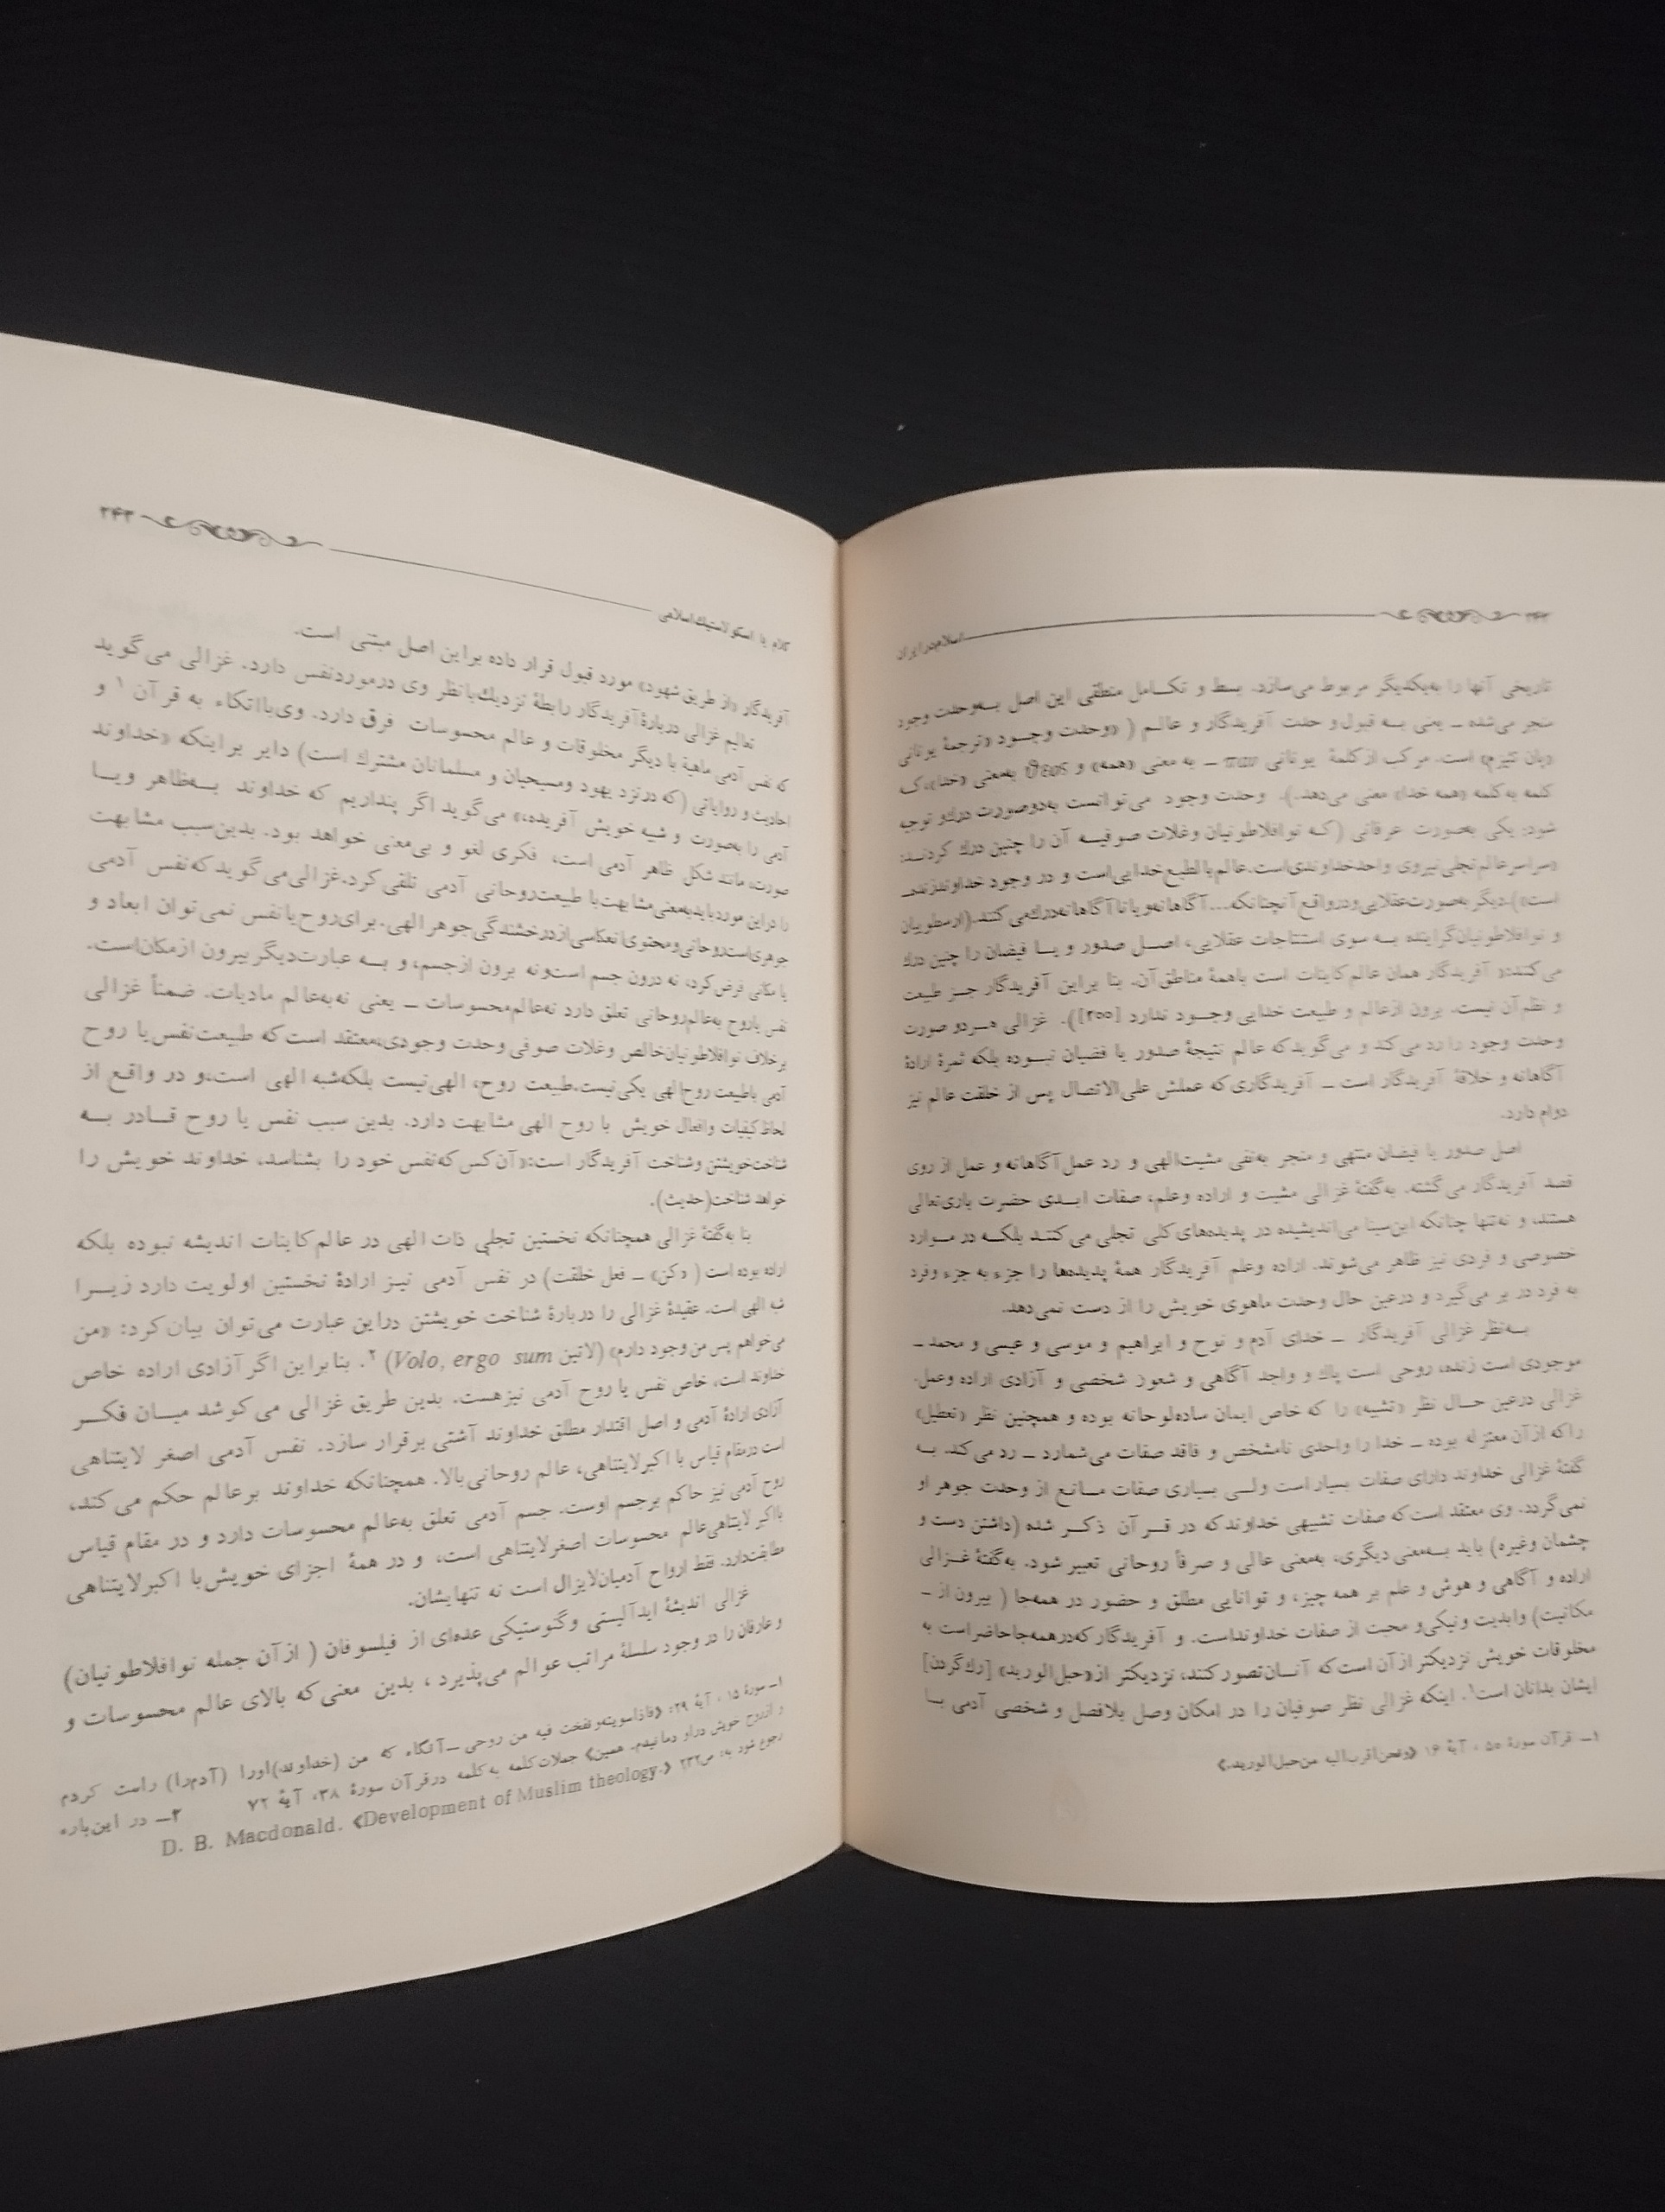 ۲۴۲
اسلام در ایران
تاریخی آنها را به‌یکدیگر مربوط می‌سازد. بسط و تکامل منطقی این اصل به‌وحدت وجود
منجر می‌شده ـ یعنی به قبول وحدت آفریدگار و عالم ( «وحدت وجود «ترجمهٔ یونانی
است. مرکب از کلمهٔ یونانی παν ـ به معنی «همه» و θεος به‌معنی «خدا»، که
کلمه به‌کلمه «همه خدا» معنی می‌دهد.). وحدت وجود می‌توانست به‌دوصورت درك و توجیه
شود: یکی به‌صورت عرفانی (که نوافلاطونیان وغلات صوفیه آن را چنین درك کردند:
«سراسر عالم تجلی نیروی واحد خداوندی است. عالم بالطبع خدایی است و در وجود خداوند زنده
است»). دیگر به‌صورت عقلایی و در واقع آنچنانکه... آگاهانه و یا نا آگاهانه درك می کنند. (ارسطوییان
و نوافلاطونیان گراینده به سوی استنتاجات عقلایی، اصل صدور و یا فیضان را چنین درك
می کنند: « آفریدگار همان عالم کاینات است باهمهٔ مناطق آن. بنا براین آفریدگار جز طبیعت
و نظم آن نیست. برون از عالم و طبیعت خدایی وجود ندارد [۲۰۰]). غزالی هردو صورت
وحدت وجود را رد می کند و می گوید که عالم نتیجهٔ صدور یا فیضان نبوده بلکه ثمرهٔ ارادهٔ
آگاهانه و خلاقهٔ آفریدگار است ـ آفریدگاری که عملش علی‌الاتصال پس از خلقت عالم نیز
دوام دارد.
اصل صدور یا فیضان منتهی و منجر به‌نفی مشیت‌الهی و رد عمل آگاهانه و عمل از روی
قصد آفریدگار می گشته. به‌گفتهٔ غزالی مشیت و اراده وعلم، صفات ابدی حضرت باری‌تعالی
هستند، و نه‌تنها چنانکه ابن‌سینا می‌اندیشیده در پدیده‌های کلی تجلی می کنند بلکه در موارد
خصوصی و فردی نیز ظاهر می‌شوند. اراده وعلم آفریدگار همهٔ پدیده‌ها را جزء به جزء وفرد
به فرد در بر می‌گیرد و درعین حال وحدت ماهوی خویش را از دست نمی‌دهد.
به‌نظر غزالی آفریدگار ـ خدای آدم و نوح و ابراهیم و موسی و عیسی و محمد ـ
موجودی است زنده، روحی است پاك و واجد آگاهی و شعور شخصی و آزادی اراده وعمل.
غزالی درعین حال نظر «تشبیه» را که خاص ایمان ساده‌لوحانه بوده و همچنین نظر «تعطیل»
را که از آن معتزله بوده ـ خدا را واحدی نامشخص و فاقد صفات می‌شمارد ـ رد می کند. به
گفتهٔ غزالی خداوند دارای صفات بسیار است ولی بسیاری صفات مانع از وحدت جوهر او
نمی گردد. وی معتقد است که صفات تشبیهی خداوند که در قرآن ذکر شده (داشتن دست و
چشمان وغیره) باید به‌معنی دیگری، به‌معنی عالی و صرفاً روحانی تعبیر شود. به‌گفتهٔ غزالی
اراده و آگاهی و هوش و علم بر همه چیز، و توانایی مطلق و حضور در همه‌جا ( بیرون از ـ
مکانیت) وابدیت ونیکی و محبت از صفات خداوند است. و آفریدگار که در همه جا حاضر است به
مخلوقات خویش نزدیکتر از آن است که آنان تصور کنند، نزدیکتر از «حبل‌الورید» [رگ گردن]
ایشان بدانان است۱. اینکه غزالی نظر صوفیان را در امکان وصل بلافصل و شخصی آدمی با
۱ـ قرآن سورهٔ ۵۰ ، آیهٔ ۱۶ «ونحن اقرب الیه من حبل الورید.»
۲۴۳
کلام یا اسکولاستیك اسلامی
آفریدگار «از طریق شهود» مورد قبول قرار داده براین اصل مبتنی است.
تعالیم غزالی دربارهٔ آفریدگار رابطهٔ نزدیك با نظر وی درمورد نفس دارد. غزالی می گوید
که نفس آدمی ماهیة با دیگر مخلوقات و عالم محسوسات فرق دارد. وی با اتکاء به قرآن ۱ و
احادیث و روایاتی (که درنزد یهود ومسیحیان و مسلمانان مشترك است) دایر براینکه «خداوند
آدمی را به‌صورت و شبه خویش آفریده،» می گوید اگر پنداریم که خداوند به‌ظاهر ویا
صورت، مانند شکل ظاهر آدمی است، فکری لغو و بی‌معنی خواهد بود. بدین‌سبب مشابهت
را در این مورد باید به‌معنی مشابهت با طبیعت روحانی آدمی تلقی کرد. غزالی می گوید که نفس آدمی
جوهری است روحانی و محتوی انعکاسی از درخشندگی جوهر الهی. برای روح یا نفس نمی توان ابعاد و
یا مکانی فرض کرد، نه درون جسم است و نه برون از جسم، و به عبارت دیگر بیرون از مکان است.
نفس یا روح به‌عالم روحانی تعلق دارد نه‌عالم محسوسات ـ یعنی نه به‌عالم مادیات. ضمناً غزالی
برخلاف نوافلاطونیان خالص وغلات صوفی وحدت وجودی، معتقد است که طبیعت نفس یا روح
آدمی با طبیعت روح الهی یکی نیست. طبیعت روح، الهی نیست بلکه شبه الهی است، و در واقع از
لحاظ کیفیات وافعال خویش با روح الهی مشابهت دارد. بدین سبب نفس یا روح قادر به
شناخت خویشتن وشناخت آفریدگار است: «آن کس که نفس خود را بشناسد، خداوند خویش را
خواهد شناخت (حدیث).
بنا به‌گفتهٔ غزالی همچنانکه نخستین تجلی ذات الهی در عالم کاینات اندیشه نبوده بلکه
اراده بوده است ( «کن» ـ فعل خلقت) در نفس آدمی نیز ارادهٔ نخستین اولویت دارد زیرا
شبه الهی است. عقیدهٔ غزالی را دربارهٔ شناخت خویشتن دراین عبارت می‌توان بیان کرد: «من
می‌خواهم پس من وجود دارم» (لاتین Volo, ergo sum) ۲. بنابراین اگر آزادی اراده خاص
خداوند است، خاص نفس یا روح آدمی نیزهست. بدین طریق غزالی می کوشد میان فکر
آزادی ارادهٔ آدمی و اصل اقتدار مطلق خداوند آشتی برقرار سازد. نفس آدمی اصغر لایتناهی
است درمقام قیاس با اکبرلایتناهی، عالم روحانی‌بالا. همچنانکه خداوند برعالم حکم می کند،
روح آدمی نیز حاکم برجسم اوست. جسم آدمی تعلق به‌عالم محسوسات دارد و در مقام قیاس
بااکبر لایتناهی‌عالم محسوسات اصغرلایتناهی است، و در همهٔ اجزای خویش‌با اکبرلایتناهی
مطابقت‌دارد. فقط ارواح آدمیان‌لایزال است نه تنهایشان.
غزالی اندیشهٔ ایدآلیستی وگنوستیکی عده‌ای از فیلسوفان ( ازآن جمله نوافلاطونیان)
وعارفان را در وجود سلسلهٔ مراتب عوالم می‌پذیرد ، بدین معنی‌که بالای عالم محسوسات و
۱ـ سورهٔ ۱۵ ، آیهٔ ۲۹: «فاذاسویته ونفخت فیه من روحی ـ آنگاه که من (خداوند) اورا (آدم‌را) راست کردم
و ازروح خویش دراو دمانیدم. همین» جملات کلمه به کلمه درقرآن سورهٔ ۳۸، آیهٔ ۷۲ ۲ـ در این‌باره
رجوع شود به: ص۲۳۲ D. B. Macdonald. «Development of Muslim theology.»